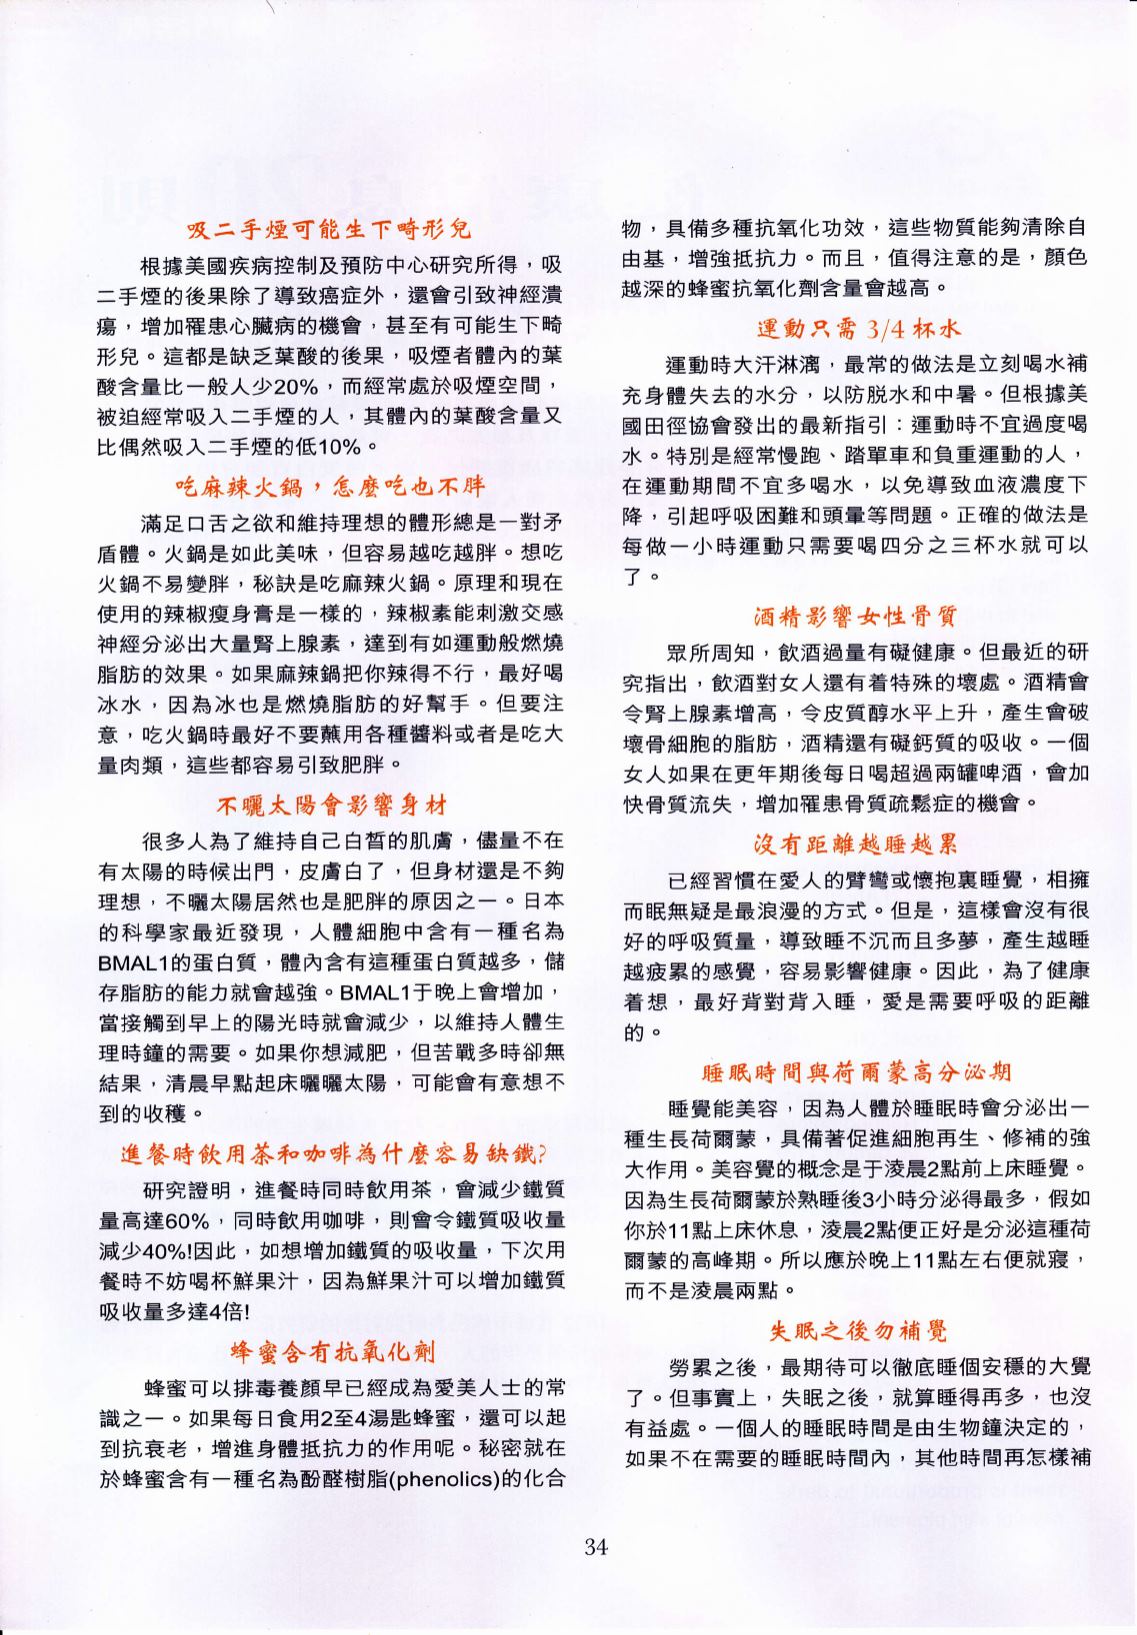 吸二手煙可能生下畸形兒
根據美國疾病控制及預防中心研究所得，吸
二手煙的後果除了導致癌症外，還會引致神經潰
瘍，增加罹患心臟病的機會，甚至有可能生下畸
形兒。這都是缺乏葉酸的後果，吸煙者體內的葉
酸含量比一般人少20%，而經常處於吸煙空間，
被迫經常吸入二手煙的人，其體內的葉酸含量又
比偶然吸入二手煙的低10%。
吃麻辣火鍋，怎麼吃也不胖
滿足口舌之欲和維持理想的體形總是一對矛
盾體。火鍋是如此美味，但容易越吃越胖。想吃
火鍋不易變胖，秘訣是吃麻辣火鍋。原理和現在
使用的辣椒瘦身膏是一樣的，辣椒素能刺激交感
神經分泌出大量腎上腺素，達到有如運動般燃燒
脂肪的效果。如果麻辣鍋把你辣得不行，最好喝
冰水，因為冰也是燃燒脂肪的好幫手。但要注
意，吃火鍋時最好不要蘸用各種醬料或者是吃大
量肉類，這些都容易引致肥胖。
不曬太陽會影響身材
很多人為了維持自己白皙的肌膚，儘量不在
有太陽的時候出門，皮膚白了，但身材還是不夠
理想，不曬太陽居然也是肥胖的原因之一。日本
的科學家最近發現，人體細胞中含有一種名為
BMAL1的蛋白質，體內含有這種蛋白質越多，儲
存脂肪的能力就會越強。BMAL1于晚上會增加，
當接觸到早上的陽光時就會減少，以維持人體生
理時鐘的需要。如果你想減肥，但苦戰多時卻無
結果，清晨早點起床曬曬太陽，可能會有意想不
到的收穫。
進餐時飲用茶和咖啡為什麼容易缺鐵?
研究證明，進餐時同時飲用茶，會減少鐵質
量高達60%，同時飲用咖啡，則會令鐵質吸收量
減少40%!因此，如想增加鐵質的吸收量，下次用
餐時不妨喝杯鮮果汁，因為鮮果汁可以增加鐵質
吸收量多達4倍!
蜂蜜含有抗氧化劑
蜂蜜可以排毒養顏早已經成為愛美人士的常
識之一。如果每日食用2至4湯匙蜂蜜，還可以起
到抗衰老，增進身體抵抗力的作用呢。秘密就在
於蜂蜜含有一種名為酚醛樹脂(phenolics)的化合
物，具備多種抗氧化功效，這些物質能夠清除自
由基，增強抵抗力。而且，值得注意的是，顏色
越深的蜂蜜抗氧化劑含量會越高。
運動只需 3/4 杯水
運動時大汗淋漓，最常的做法是立刻喝水補
充身體失去的水分，以防脫水和中暑。但根據美
國田徑協會發出的最新指引：運動時不宜過度喝
水。特別是經常慢跑、踏單車和負重運動的人，
在運動期間不宜多喝水，以免導致血液濃度下
降，引起呼吸困難和頭暈等問題。正確的做法是
每做一小時運動只需要喝四分之三杯水就可以
了。
酒精影響女性骨質
眾所周知，飲酒過量有礙健康。但最近的研
究指出，飲酒對女人還有着特殊的壞處。酒精會
令腎上腺素增高，令皮質醇水平上升，產生會破
壞骨細胞的脂肪，酒精還有礙鈣質的吸收。一個
女人如果在更年期後每日喝超過兩罐啤酒，會加
快骨質流失，增加罹患骨質疏鬆症的機會。
沒有距離越睡越累
已經習慣在愛人的臂彎或懷抱裏睡覺，相擁
而眠無疑是最浪漫的方式。但是，這樣會沒有很
好的呼吸質量，導致睡不沉而且多夢，產生越睡
越疲累的感覺，容易影響健康。因此，為了健康
着想，最好背對背入睡，愛是需要呼吸的距離
的。
睡眠時間與荷爾蒙高分泌期
睡覺能美容，因為人體於睡眠時會分泌出一
種生長荷爾蒙，具備著促進細胞再生、修補的強
大作用。美容覺的概念是于淩晨2點前上床睡覺。
因為生長荷爾蒙於熟睡後3小時分泌得最多，假如
你於11點上床休息，淩晨2點便正好是分泌這種荷
爾蒙的高峰期。所以應於晚上11點左右便就寢，
而不是淩晨兩點。
失眠之後勿補覺
勞累之後，最期待可以徹底睡個安穩的大覺
了。但事實上，失眠之後，就算睡得再多，也沒
有益處。一個人的睡眠時間是由生物鐘決定的，
如果不在需要的睡眠時間內，其他時間再怎樣補
34